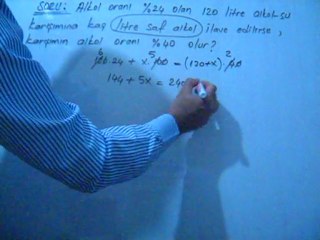 SORU: Alkol oranı %24 olan 120 litre alkol-su
karışımına kaç litre saf alkol ilave edilirse,
karışımın alkol oranı %40 olur?
6 5 2
120.24 + x.100 = (120+x).40
144 + 5x = 24